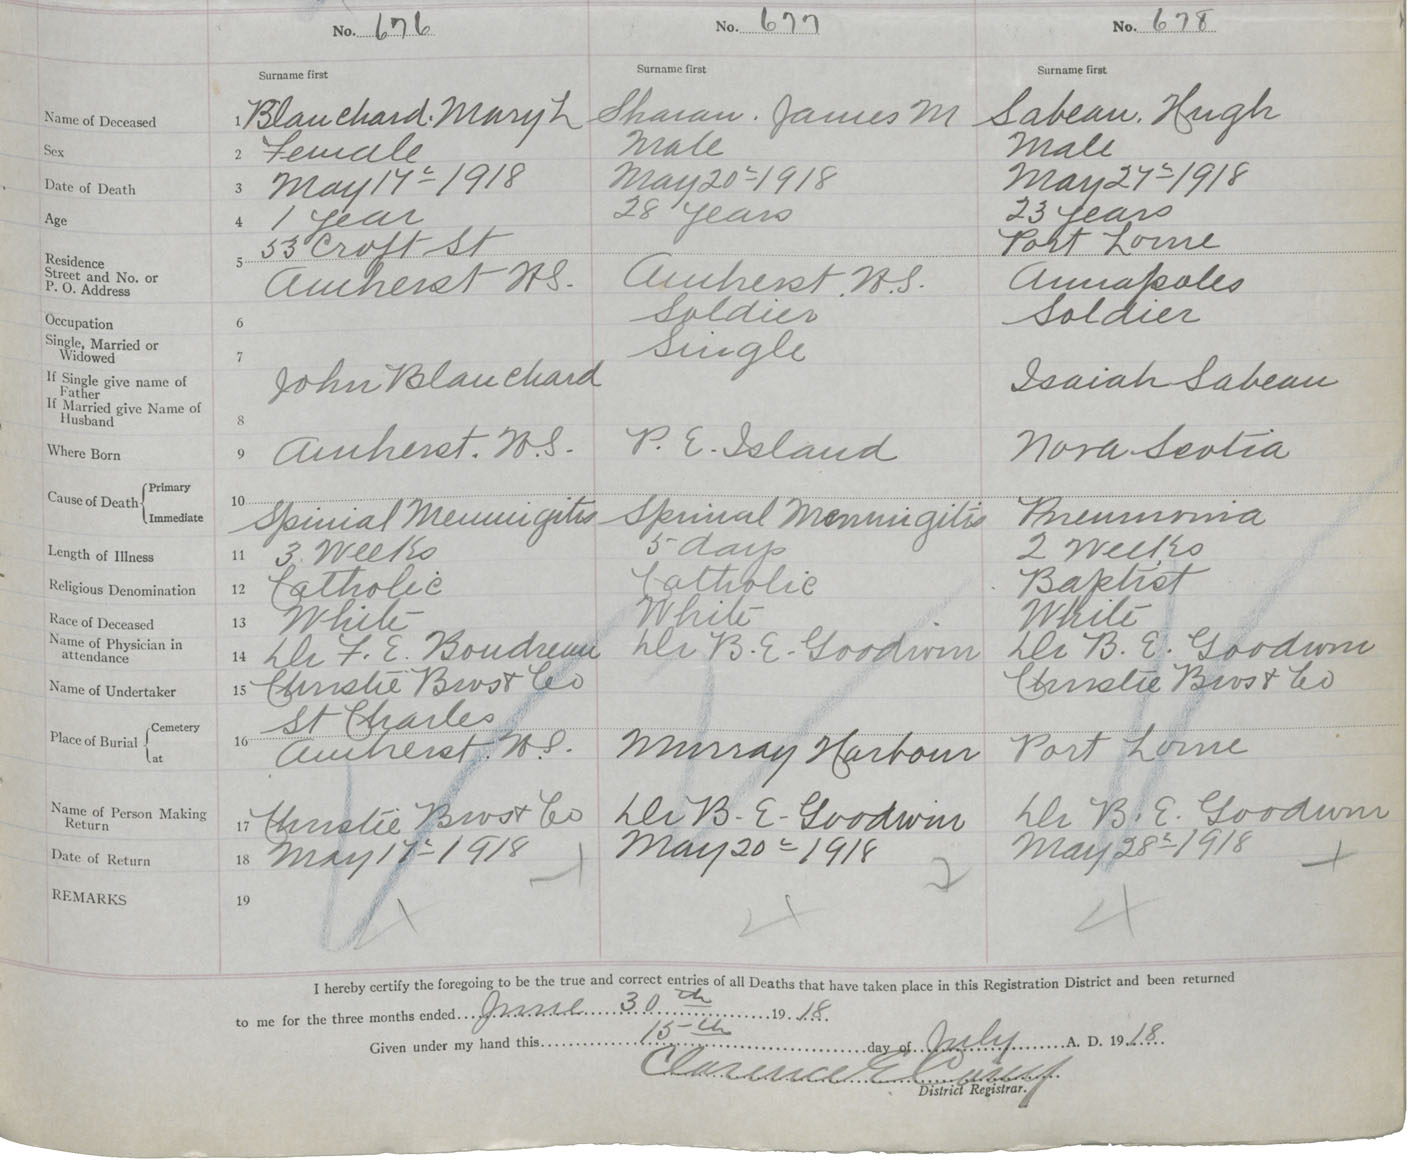 No. 676 No. 677 No. 678
Surname first Surname first Surname first
Name of Deceased 1 Blanchard. Mary L Sharan. James M Sabean. Hugh
Sex 2 Female Male Male
Date of Death 3 May 17th 1918 May 20th 1918 May 27th 1918
Age 4 1 Year 28 Years 23 Years
53 Croft St Port Lorne
Residence
Street and No. or
P. O. Address 5 Amherst N.S. Amherst. N.S. Annapoles
Occupation 6 Soldier Soldier
Single, Married or
Widowed 7 Single
If Single give name of
Father John Blanchard Isaiah Sabean
If Married give Name of
Husband 8
Where Born 9 Amherst. N.S. P. E. Island Nova Scotia
Cause of Death { Primary 10
Immediate Spinial Mennigitis Sprinal Mennigitis Pneumonia
Length of Illness 11 3 Weeks 5 days 2 Weeks
Religious Denomination 12 Catholic Catholic Baptist
Race of Deceased 13 White White White
Name of Physician in
attendance 14 Dr F. E. Boudreau Dr B. E. Goodwin Dr B. E. Goodwin
Name of Undertaker 15 Christie Bros & Co Christie Bros & Co
Place of Burial { Cemetery 16 St Charles
at Amherst. N.S. Murray Harbour Port Lorne
Name of Person Making
Return 17 Christie Bros & Co Dr B. E. Goodwin Dr B. E. Goodwin
Date of Return 18 May 17th 1918 May 20th 1918 May 28th 1918
REMARKS 19
I hereby certify the foregoing to be the true and correct entries of all Deaths that have taken place in this Registration District and been returned
to me for the three months ended June 30th 1918.
Given under my hand this 15th day of July A. D. 1918.
Clarence E
District Registrar.